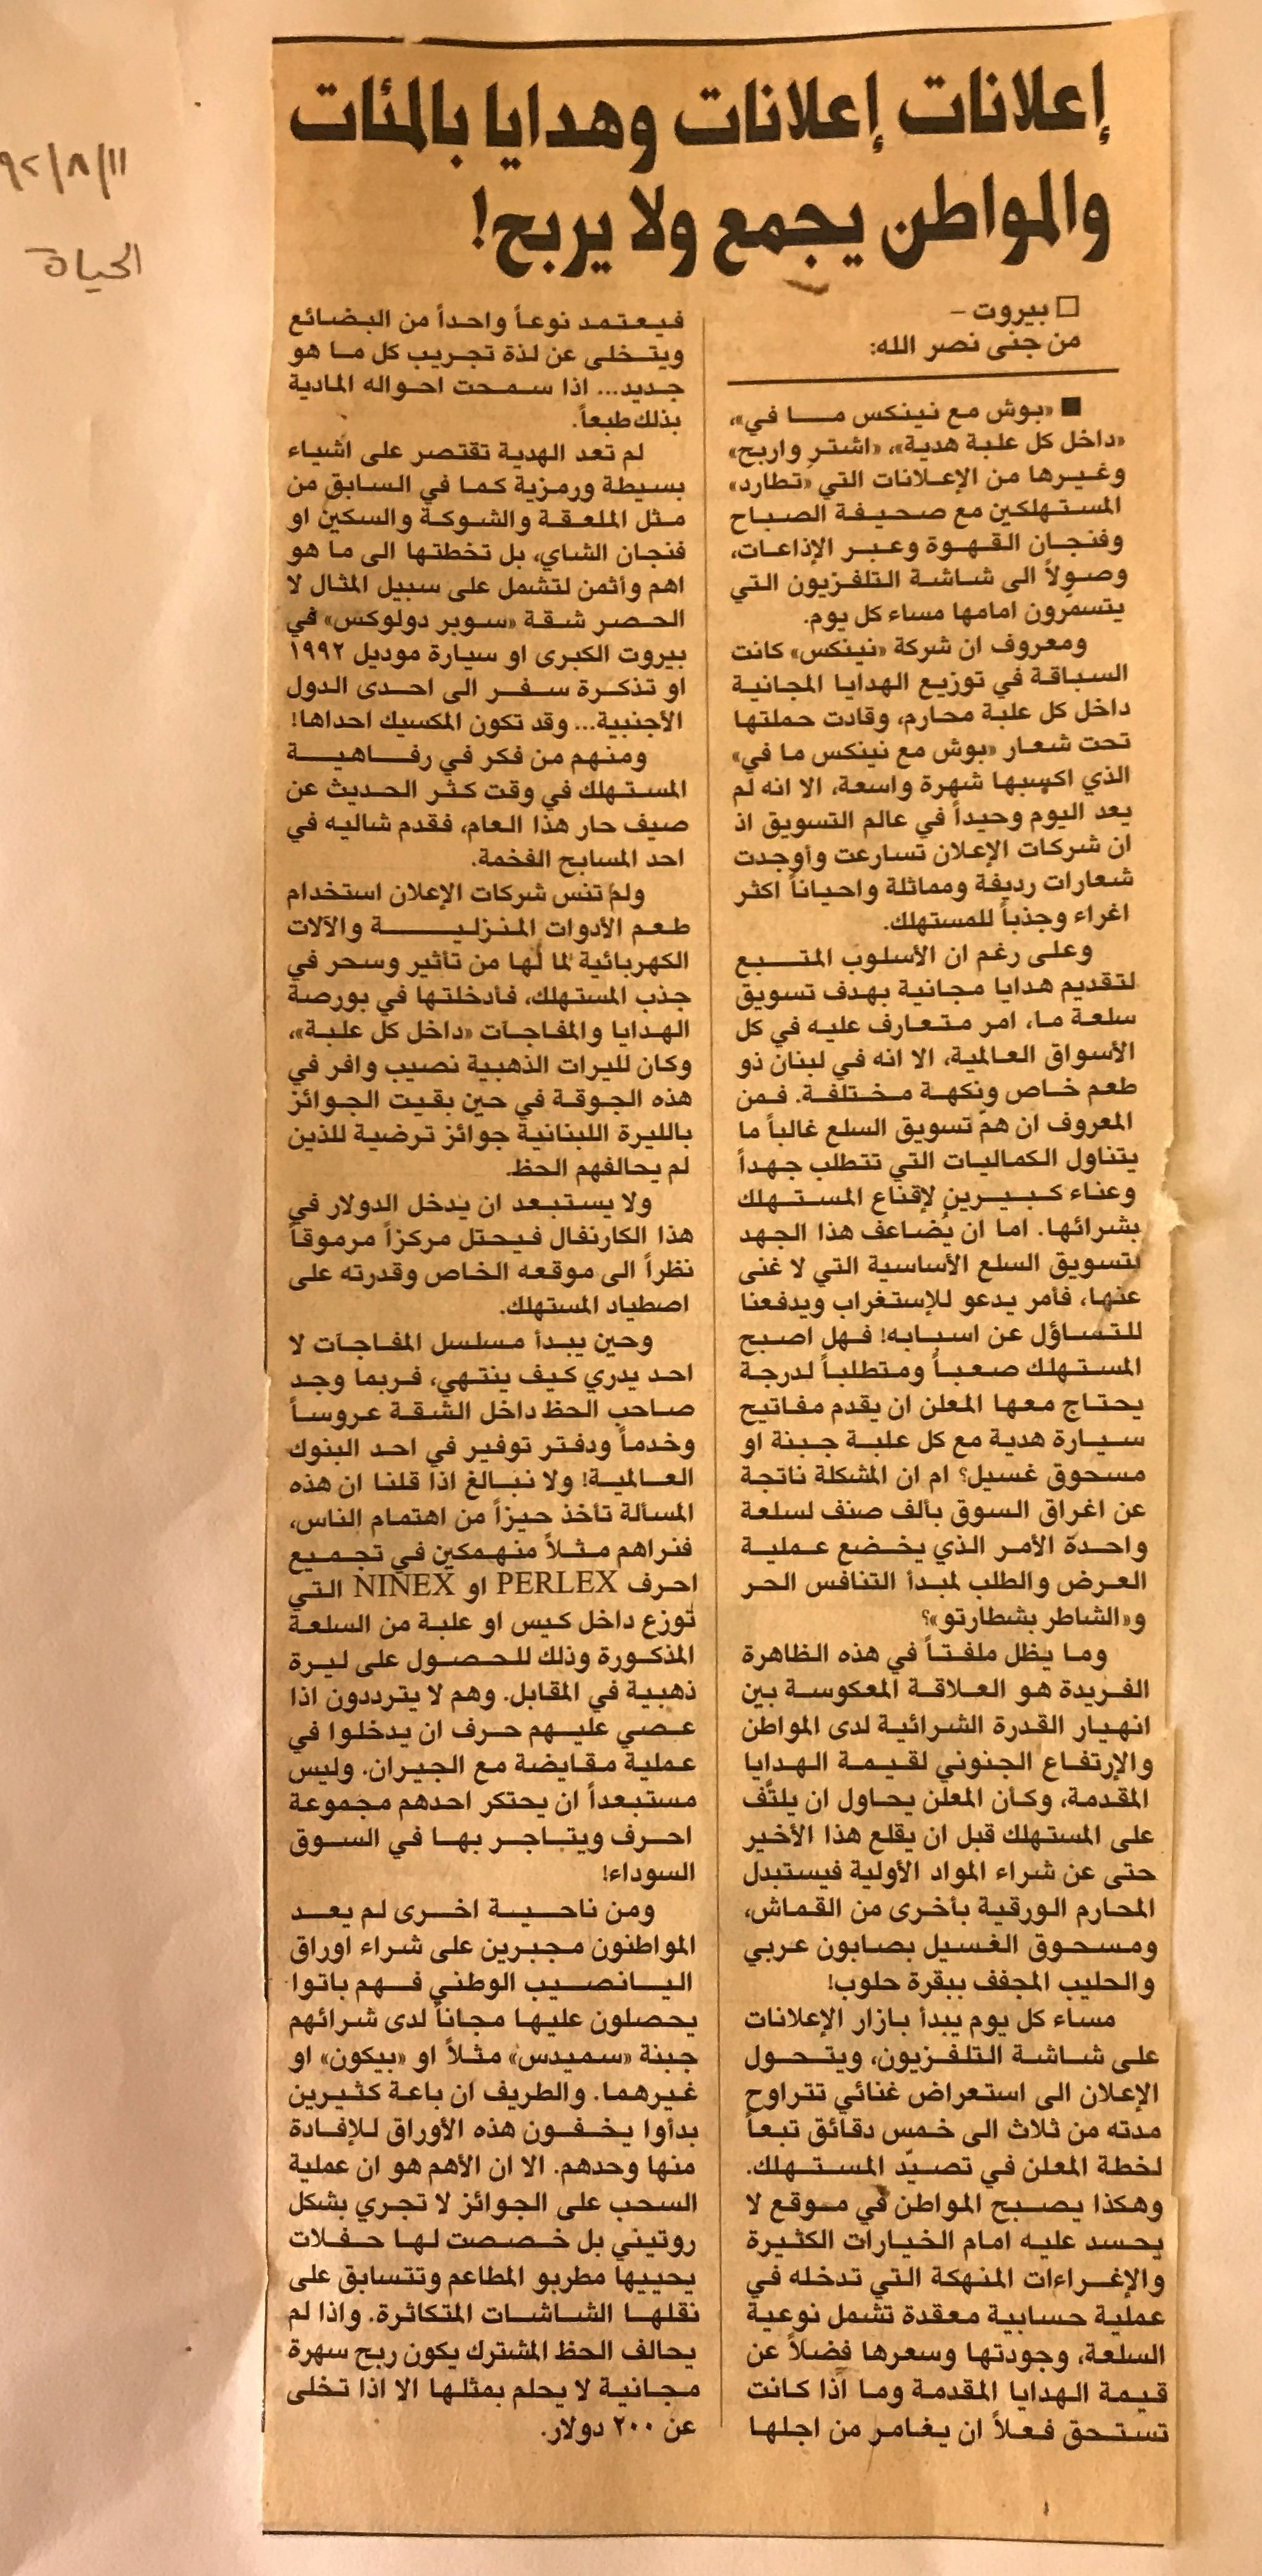 إعلانات إعلانات وهدايا بالمئات
والمواطن يجمع ولا يربح!
□ بيروت –
من جنى نصر الله:
■ «بوش مع نينكس ما في»،
«داخل كل علبة هدية»، «اشترِ واربح»
وغيرها من الإعلانات التي «تطارد»
المستهلكين مع صحيفة الصباح
وفنجان القهوة وعبر الإذاعات،
وصولاً الى شاشة التلفزيون التي
يتسمرون امامها مساء كل يوم.
ومعروف ان شركة «نينكس» كانت
السباقة في توزيع الهدايا المجانية
داخل كل علبة محارم، وقادت حملتها
تحت شعار «بوش مع نينكس ما في»
الذي اكسبها شهرة واسعة، الا انه لم
يعد اليوم وحيداً في عالم التسويق اذ
ان شركات الإعلان تسارعت وأوجدت
شعارات رديفة ومماثلة واحياناً اكثر
اغراء وجذباً للمستهلك.
وعلى رغم ان الأسلوب المتبع
لتقديم هدايا مجانية بهدف تسويق
سلعة ما، امر متعارف عليه في كل
الأسواق العالمية، الا انه في لبنان ذو
طعم خاص ونكهة مختلفة. فمن
المعروف ان همّ تسويق السلع غالباً ما
يتناول الكماليات التي تتطلب جهداً
وعناء كبيرين لإقناع المستهلك
بشرائها. اما ان يُضاعف هذا الجهد
بتسويق السلع الأساسية التي لا غنى
عنها، فأمر يدعو للإستغراب ويدفعنا
للتساؤل عن اسبابه! فهل اصبح
المستهلك صعباً ومتطلباً لدرجة
يحتاج معها المعلن ان يقدم مفاتيح
سيارة هدية مع كل علبة جبنة او
مسحوق غسيل؟ ام ان المشكلة ناتجة
عن اغراق السوق بألف صنف لسلعة
واحدة الأمر الذي يخضع عملية
العرض والطلب لمبدأ التنافس الحر
و«الشاطر بشطارتو»؟
وما يظل ملفتاً في هذه الظاهرة
الفريدة هو العلاقة المعكوسة بين
انهيار القدرة الشرائية لدى المواطن
والإرتفاع الجنوني لقيمة الهدايا
المقدمة، وكأن المعلن يحاول ان يلتّف
على المستهلك قبل ان يقلع هذا الأخير
حتى عن شراء المواد الأولية فيستبدل
المحارم الورقية بأخرى من القماش،
ومسحوق الغسيل بصابون عربي
والحليب المجفف ببقرة حلوب!
مساء كل يوم يبدأ بازار الإعلانات
على شاشة التلفزيون، ويتحول
الإعلان الى استعراض غنائي تتراوح
مدته من ثلاث الى خمس دقائق تبعاً
لخطة المعلن في تصيّد المستهلك.
وهكذا يصبح المواطن في موقع لا
يحسد عليه امام الخيارات الكثيرة
والإغراءات المنهكة التي تدخله في
عملية حسابية معقدة تشمل نوعية
السلعة، وجودتها وسعرها فضلاً عن
قيمة الهدايا المقدمة وما اذا كانت
تستحق فعلاً ان يغامر من اجلها
فيعتمد نوعاً واحداً من البضائع
ويتخلى عن لذة تجريب كل ما هو
جديد... اذا سمحت احواله المادية
بذلك طبعاً.
لم تعد الهدية تقتصر على اشياء
بسيطة ورمزية كما في السابق من
مثل الملعقة والشوكة والسكين او
فنجان الشاي، بل تخطتها الى ما هو
اهم وأثمن لتشمل على سبيل المثال لا
الحصر شقة «سوبر دولوكس» في
بيروت الكبرى او سيارة موديل ١٩٩٢
او تذكرة سفر الى احدى الدول
الأجنبية... وقد تكون المكسيك احداها!
ومنهم من فكر في رفاهية
المستهلك في وقت كثر الحديث عن
صيف حار هذا العام، فقدم شاليه في
احد المسابح الفخمة.
ولم تنس شركات الإعلان استخدام
طعم الأدوات المنزلية والآلات
الكهربائية لما لها من تأثير وسحر في
جذب المستهلك، فأدخلتها في بورصة
الهدايا والمفاجآت «داخل كل علبة»،
وكان لليرات الذهبية نصيب وافر في
هذه الجوقة في حين بقيت الجوائز
بالليرة اللبنانية جوائز ترضية للذين
لم يحالفهم الحظ.
ولا يستبعد ان يدخل الدولار في
هذا الكارنفال فيحتل مركزاً مرموقاً
نظراً الى موقعه الخاص وقدرته على
اصطياد المستهلك.
وحين يبدأ مسلسل المفاجآت لا
احد يدري كيف ينتهي، فربما وجد
صاحب الحظ داخل الشقة عروساً
وخدماً ودفتر توفير في احد البنوك
العالمية! ولا نبالغ اذا قلنا ان هذه
المسألة تأخذ حيزاً من اهتمام الناس،
فنراهم مثلاً منهمكين في تجميع
احرف PERLEX او NINEX التي
توزع داخل كيس او علبة من السلعة
المذكورة وذلك للحصول على ليرة
ذهبية في المقابل. وهم لا يترددون اذا
عصي عليهم حرف ان يدخلوا في
عملية مقايضة مع الجيران. وليس
مستبعداً ان يحتكر احدهم مجموعة
احرف ويتاجر بها في السوق
السوداء!
ومن ناحية اخرى لم يعد
المواطنون مجبرين على شراء اوراق
اليانصيب الوطني فهم باتوا
يحصلون عليها مجاناً لدى شرائهم
جبنة «سميدس» مثلاً او «بيكون» او
غيرهما. والطريف ان باعة كثيرين
بدأوا يخفون هذه الأوراق للإفادة
منها وحدهم. الا ان الأهم هو ان عملية
السحب على الجوائز لا تجري بشكل
روتيني بل خصصت لها حفلات
يحييها مطربو المطاعم وتتسابق على
نقلها الشاشات المتكاثرة. واذا لم
يحالف الحظ المشترك يكون ربح سهرة
مجانية لا يحلم بمثلها الا اذا تخلى
عن ٢٠٠ دولار.
١١/٨/٩٢
الحياة